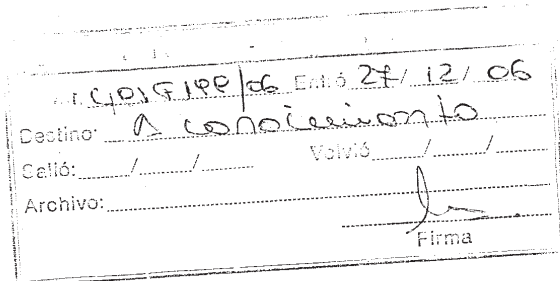 Entró 27/ 12/ 06
Destino: A conocimiento
Salió: / / Volvió / /
Archivo:
Firma